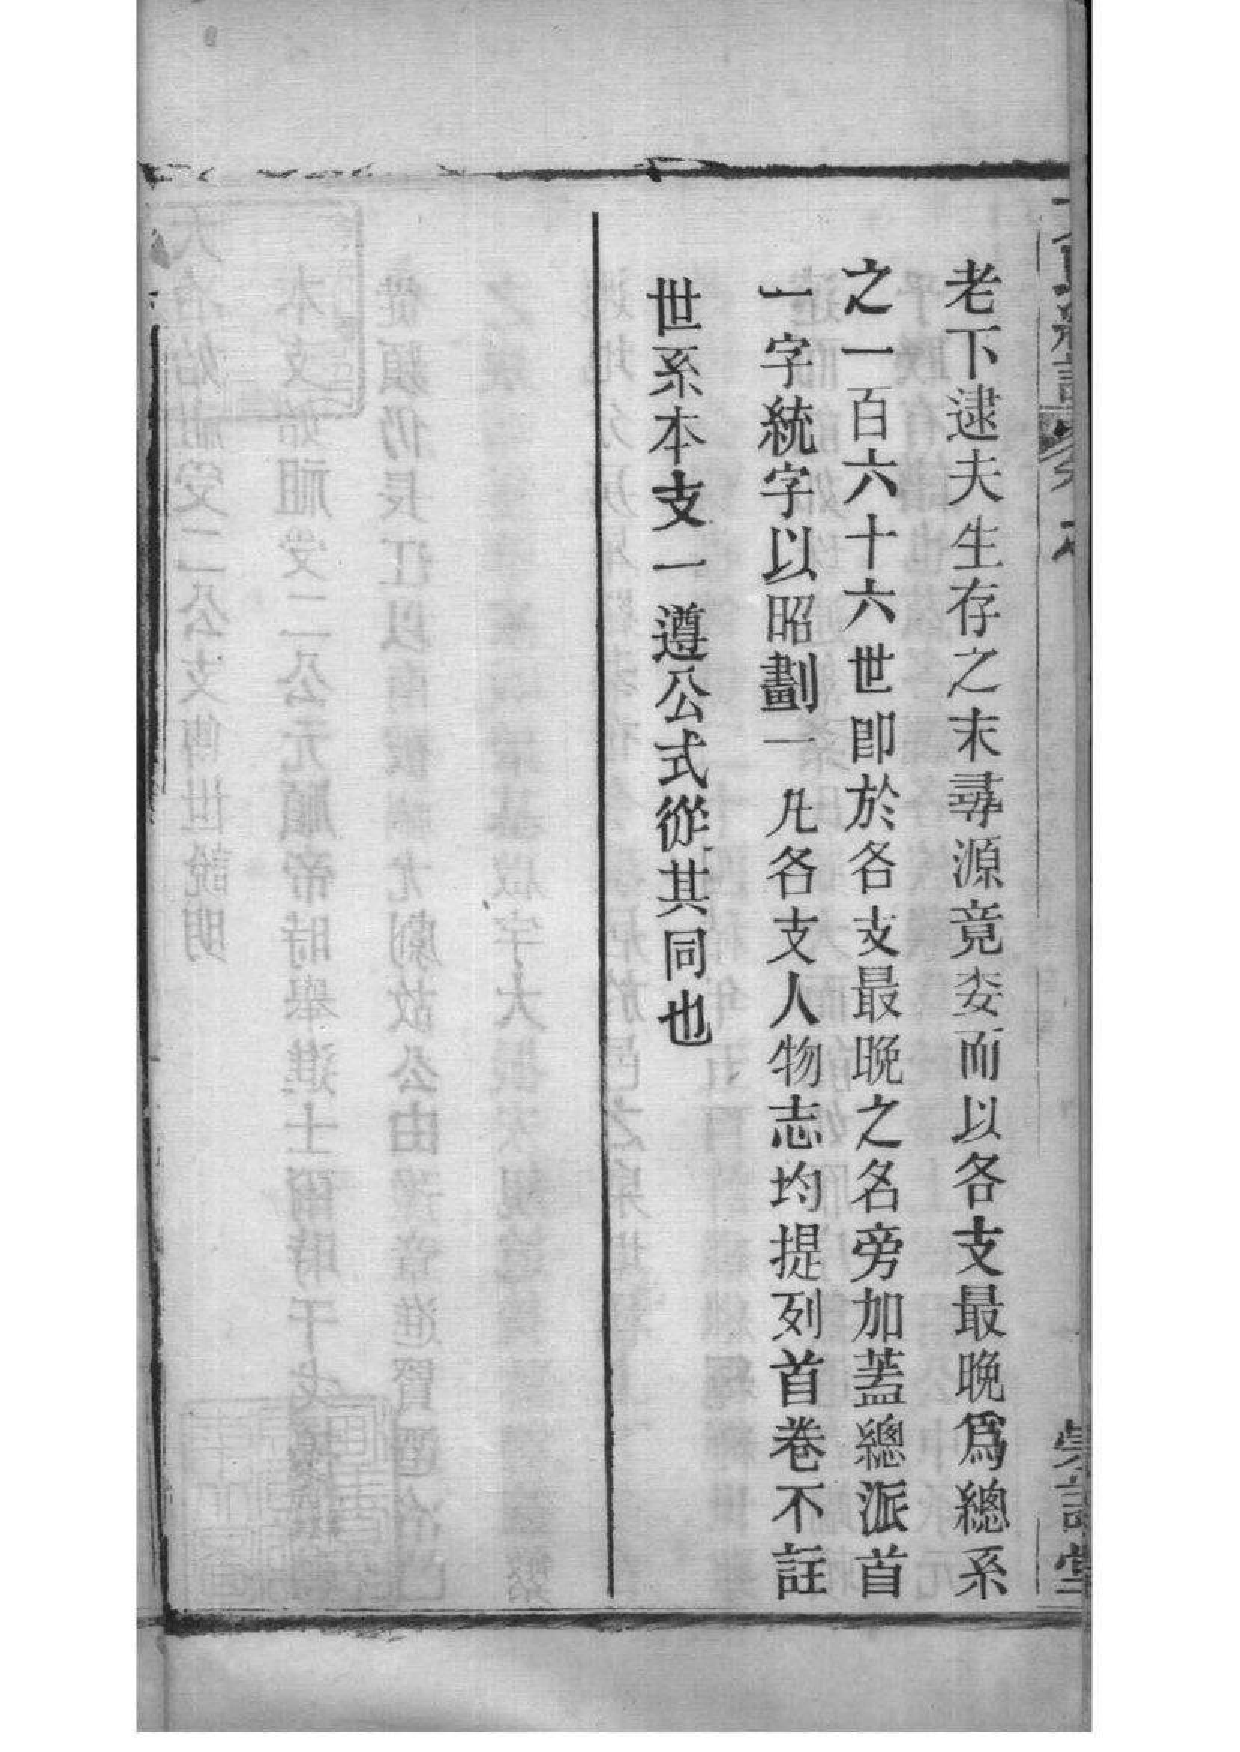 老下逮夫生存之末尋源竟委而以各支最晚爲總系
之一百六十六世即於各支最晚之名旁加蓋總派首
一字統字以昭劃一凡各支人物志均提列首卷不註
世系本支一遵公式從其同也